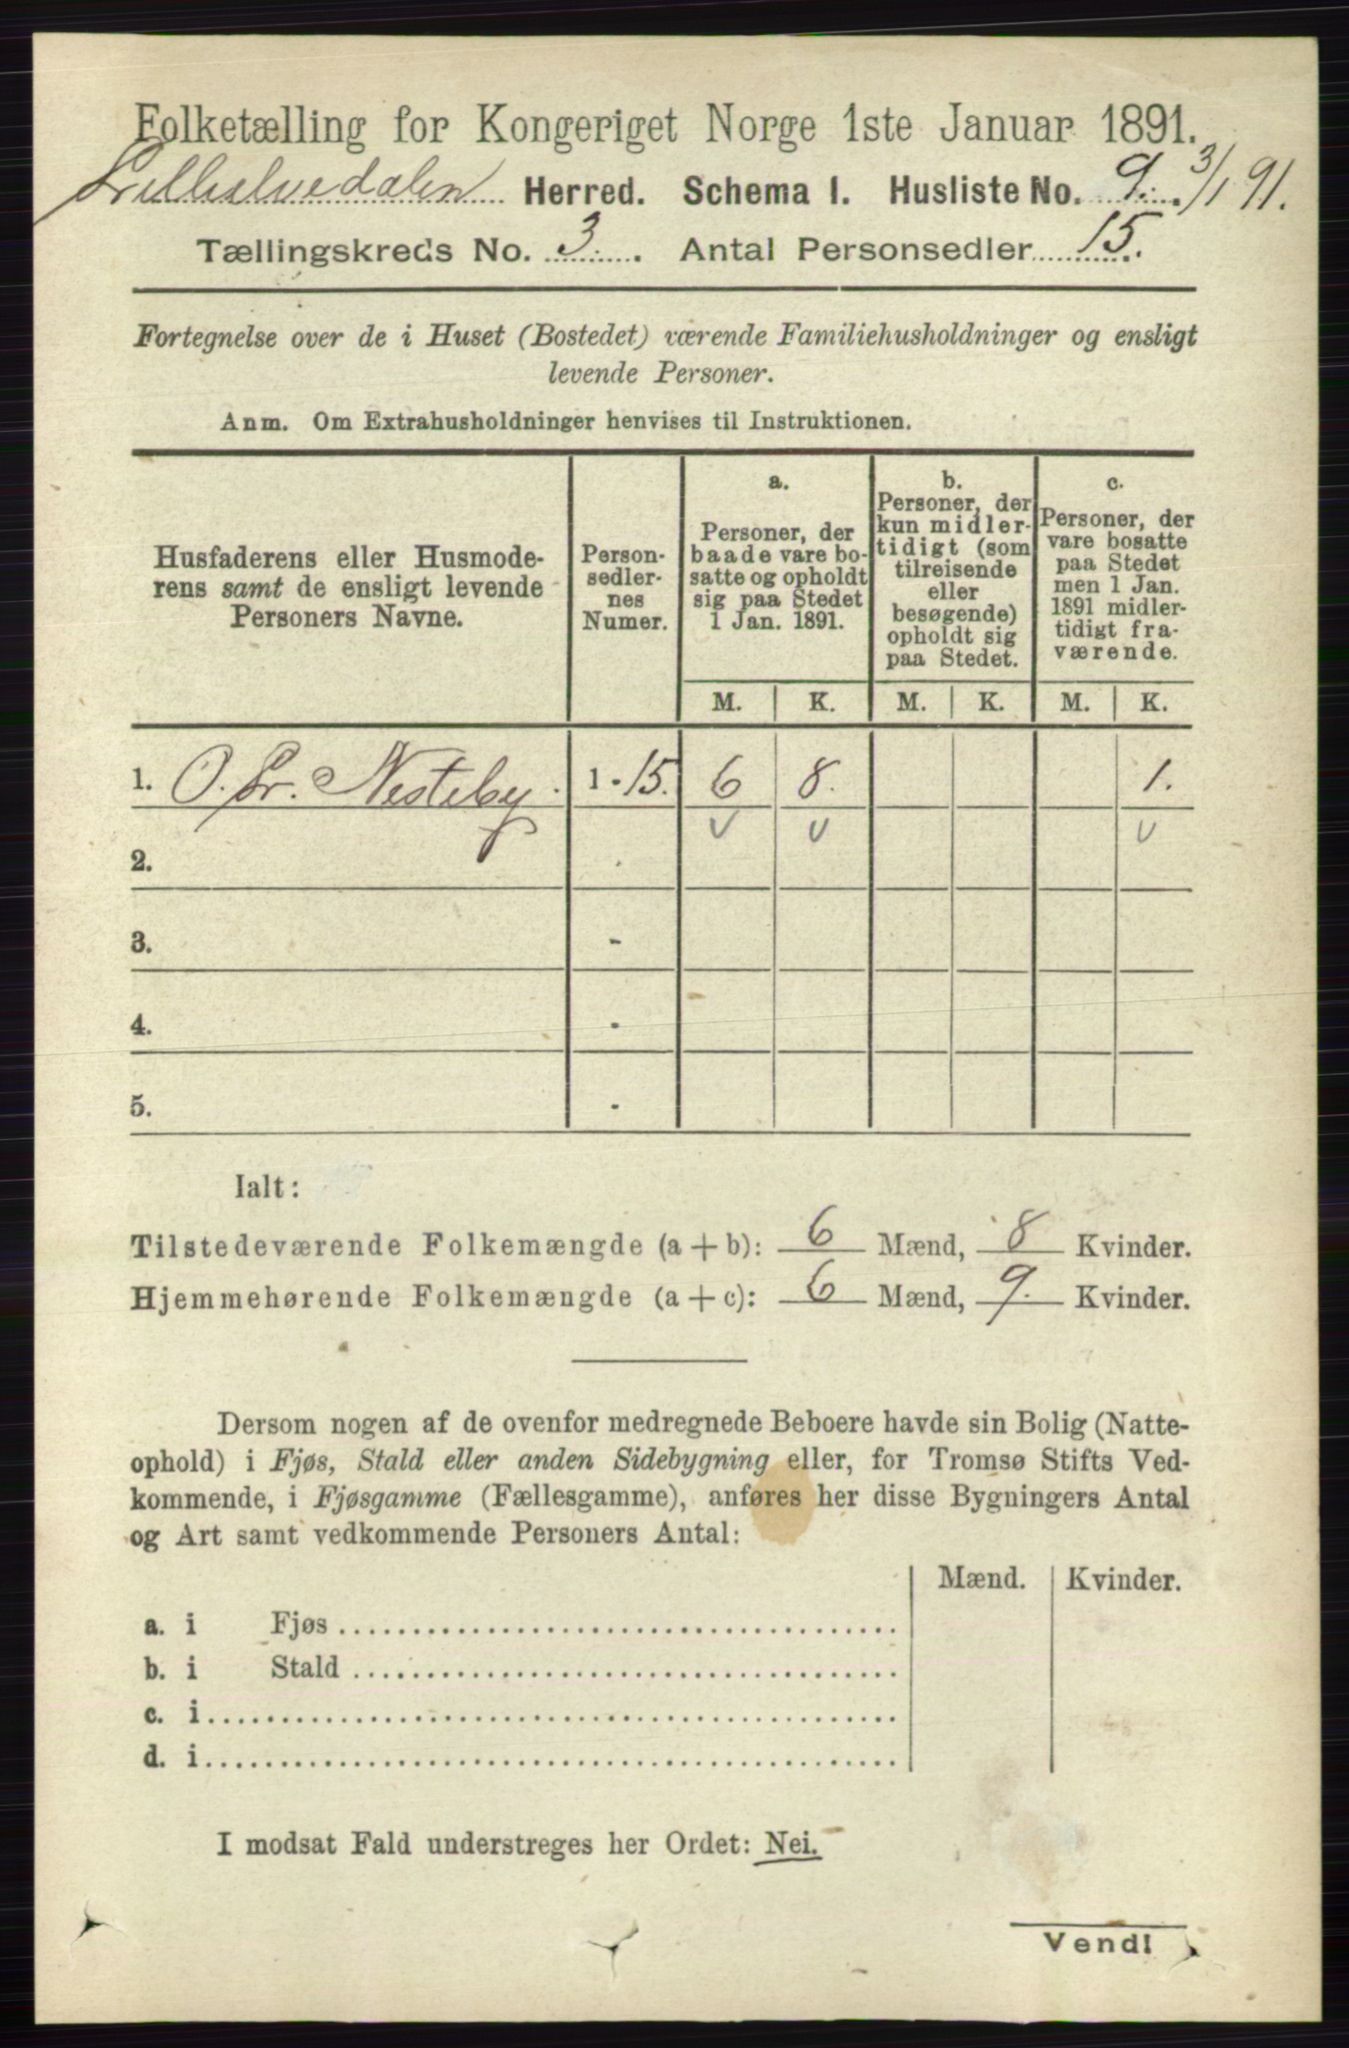 Folketælling for Kongeriget Norge 1ste Januar 1891.
Lilleelvedalen Herred. Schema I. Husliste No. 9. 3/1 91.
Tællingskreds No. 3. Antal Personsedler 15.
Fortegnelse over de i Huset (Bostedet) værende Familiehusholdninger og ensligt
levende Personer.
Anm. Om Extrahusholdninger henvises til Instruktionen.
Husfaderens eller Husmode-
rens samt de ensligt levende
Personers Navne.
Person-
sedler-
nes
Numer.
a.
Personer, der
baade vare bo-
satte og opholdt
sig paa Stedet
1 Jan. 1891.
b.
Personer, der
kun midler-
tidigt (som
tilreisende
eller
besøgende)
opholdt sig
paa Stedet.
c.
Personer, der
vare bosatte
paa Stedet
men 1 Jan.
1891 midler-
tidigt fra-
værende.
M. K. M. K. M. K.
1. O. Gr. Nesteby. 1-15. 6 8. 1.
2. -
3. -
4. -
5. -
Ialt:
Tilstedeværende Folkemængde (a + b): 6 Mænd, 8 Kvinder.
Hjemmehørende Folkemængde (a + c): 6 Mænd, 9. Kvinder.
Dersom nogen af de ovenfor medregnede Beboere havde sin Bolig (Natte-
ophold) i Fjøs, Stald eller anden Sidebygning eller, for Tromsø Stifts Ved-
kommende, i Fjøsgamme (Fællesgamme), anføres her disse Bygningers Antal
og Art samt vedkommende Personers Antal:
Mænd. Kvinder.
a. i Fjøs
b. i Stald
c. i
d. i
I modsat Fald understreges her Ordet: Nei.
Vend!